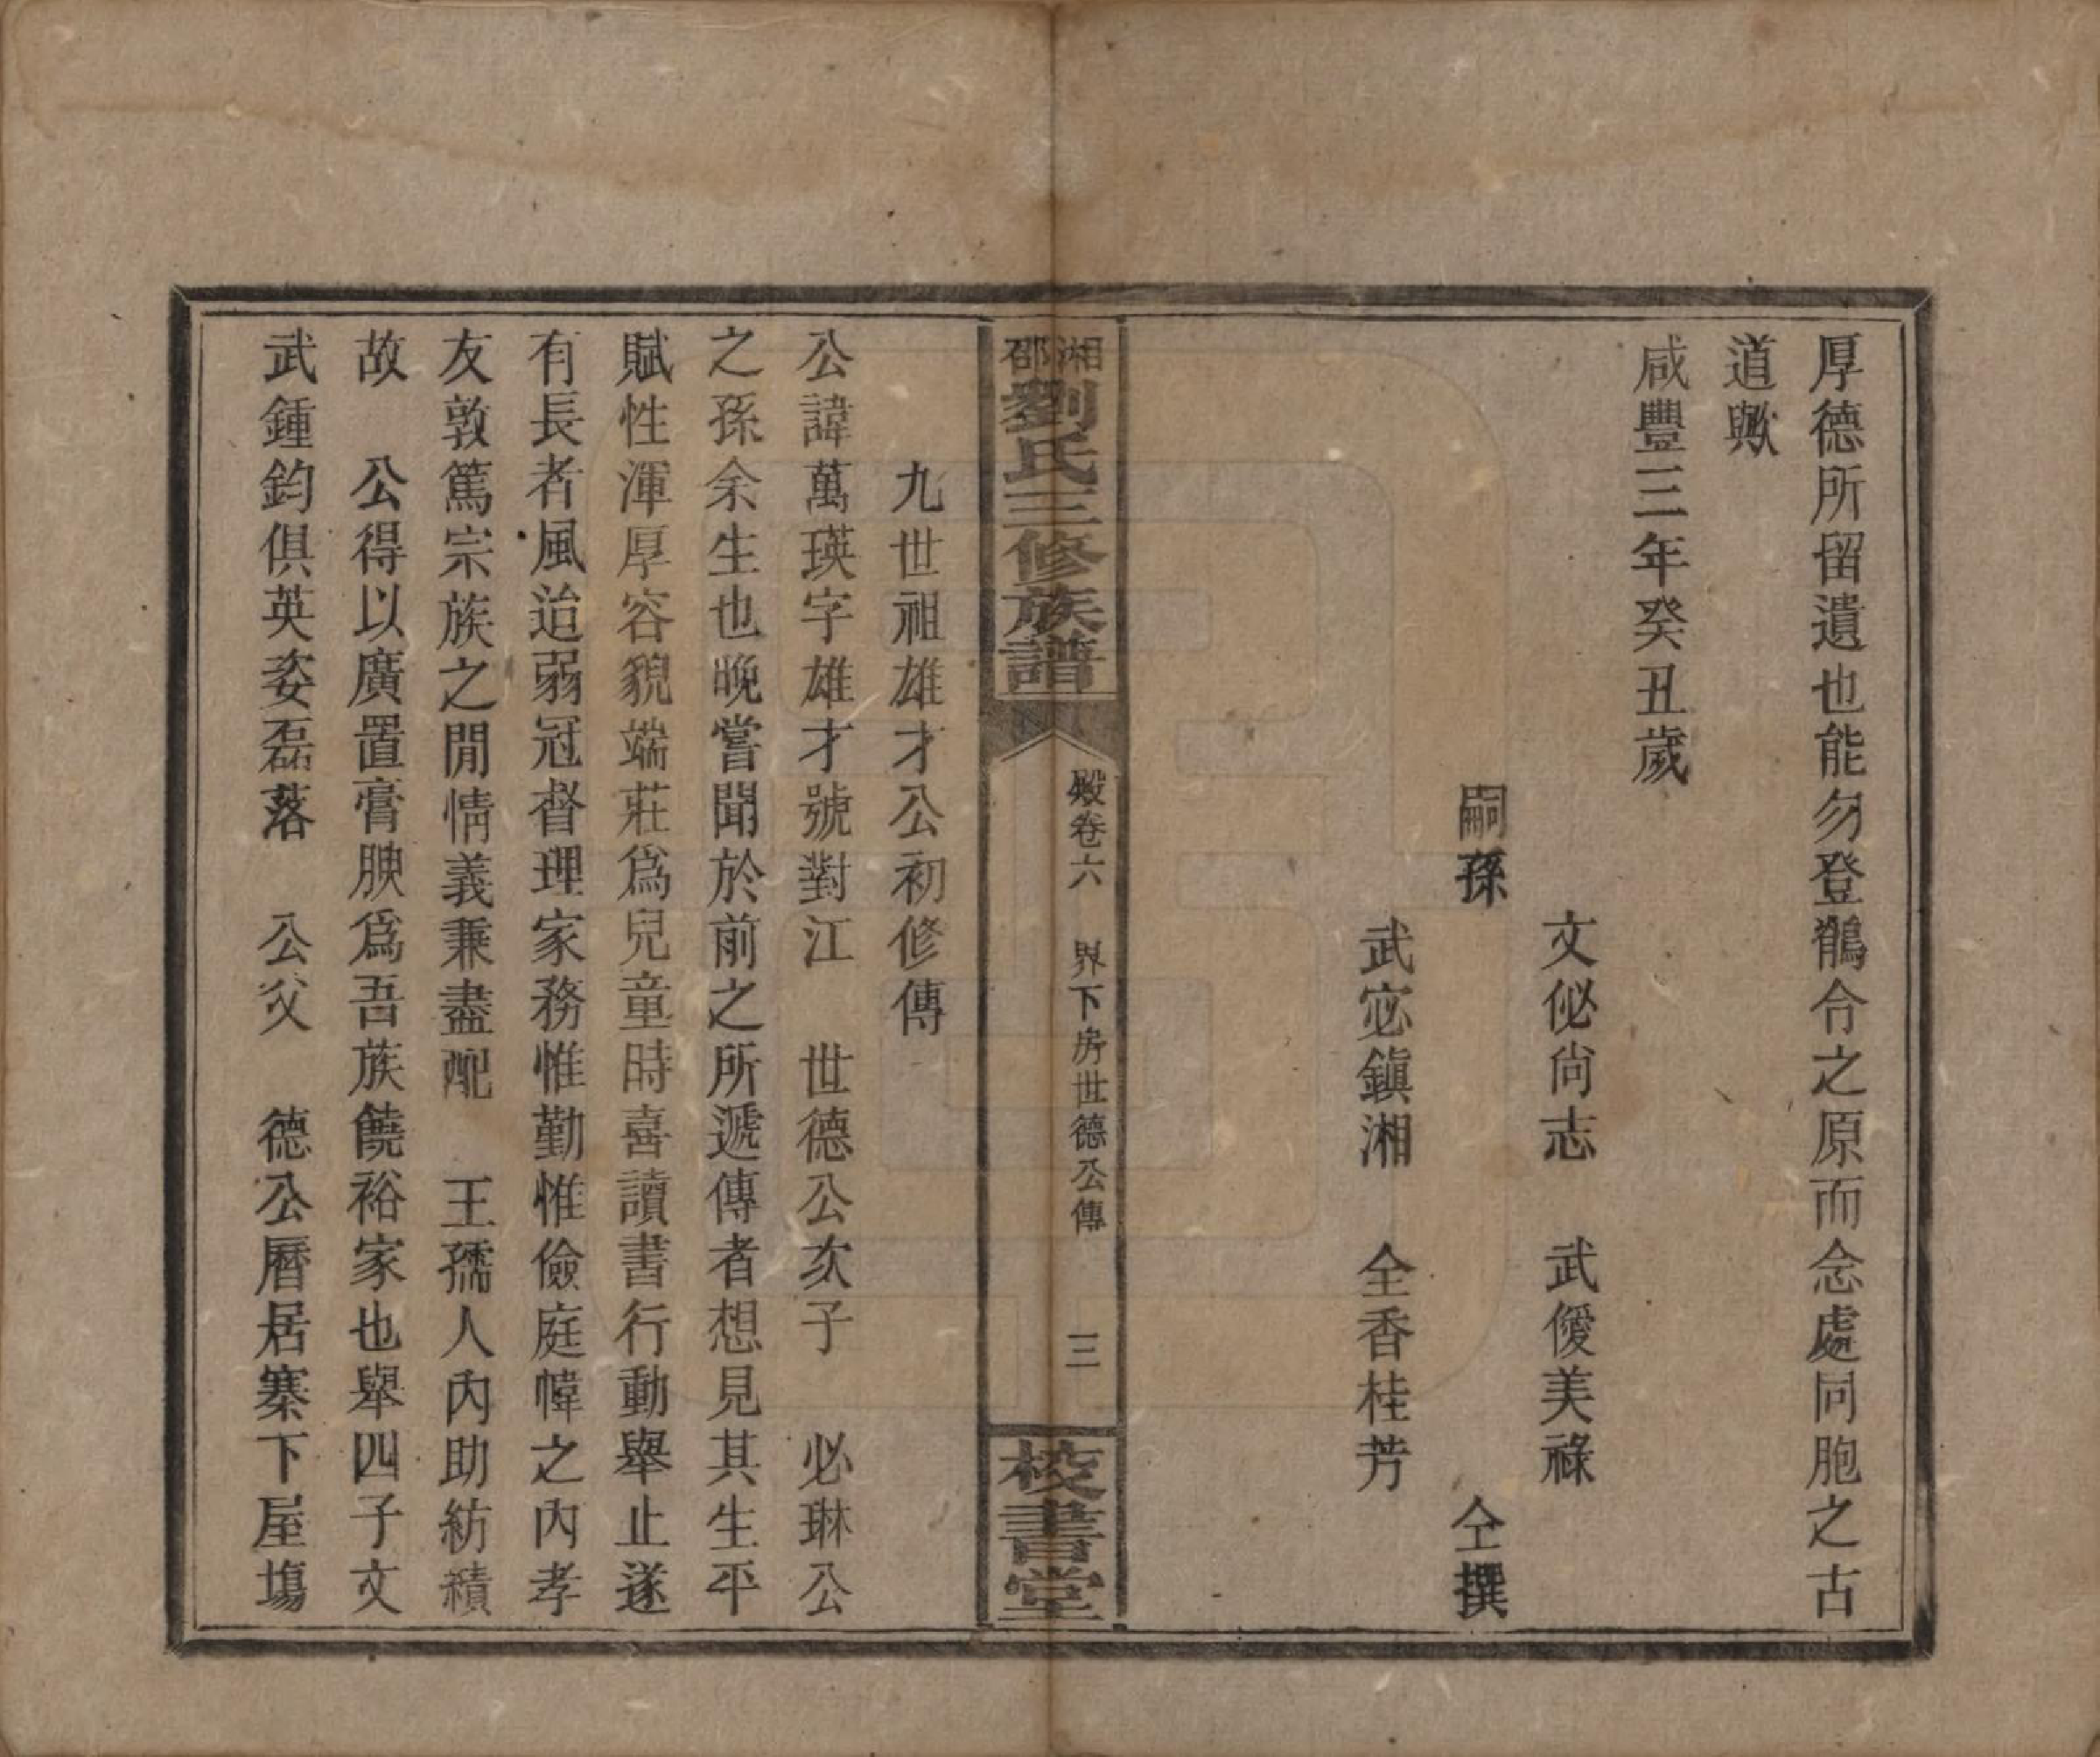 厚德所留遺也能勿登鶺令之原而念處同胞之古
道歟
咸豐三年癸丑歲
文佖尙志 武僾美祿
嗣孫 仝撰
武宓鎭湘 全香桂芳
湘邵劉氏三修族譜 殿卷六 界下房世德公傳 三 校書堂
九世祖雄才公初修傳
公諱萬瑛字雄才號對江 世德公次子 必琳公
之孫余生也晚嘗聞於前之所遞傳者想見其生平
賦性渾厚容貌端莊爲兒童時喜讀書行動舉止遂
有長者風迨弱冠督理家務惟勤惟儉庭幃之內孝
友敦篤宗族之閒情義兼盡配 王孺人內助紡績
故 公得以廣置膏腴爲吾族饒裕家也舉四子文
武鍾鈞俱英姿磊落 公父 德公曆居寨下屋塲